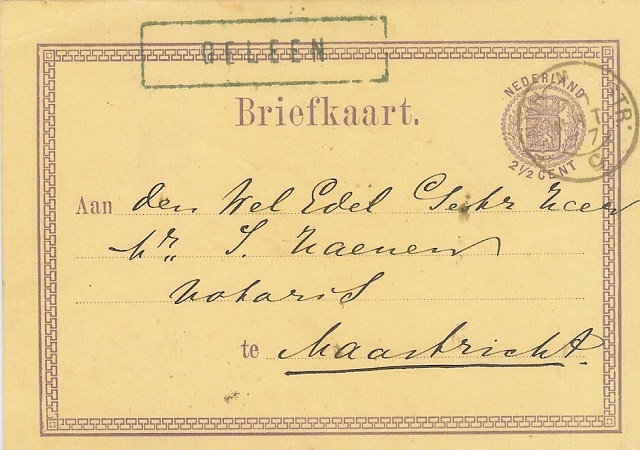 GELEEN
Briefkaart.
NEDERLAND
2½ CENT
Aan den Wel Edel Gestr Heer
Mr. S. Haenen
Notaris
te Maastricht